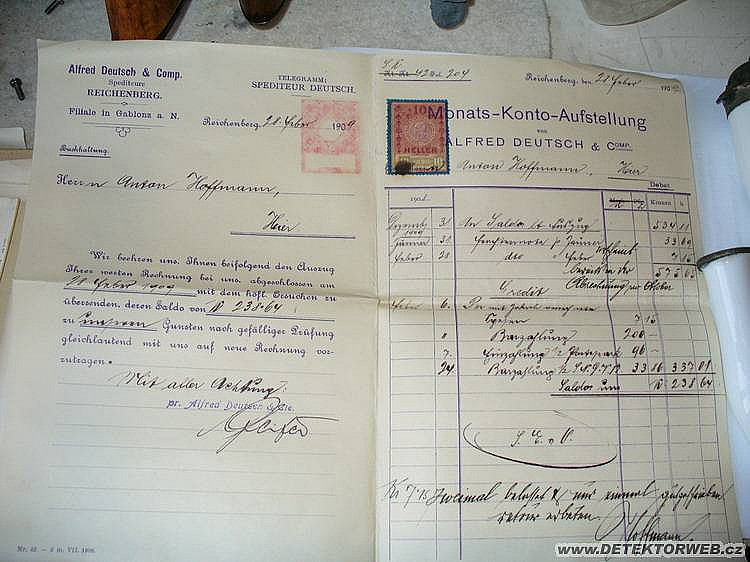 Alfred Deutsch & Comp.
Spediteure
REICHENBERG.
Filiale in Gablonz a. N.
Buchhaltung.
TELEGRAMM:
SPEDITEUR DEUTSCH.
Reichenberg, 28 Feber 1909
Herrn Anton Hoffmann,
Hier
Wir beehren uns, Ihnen beifolgend den Auszug
Ihrer werten Rechnung bei uns, abgeschlossen am
28 Feber 1909 mit dem höfl. Ersuchen zu
übersenden, deren Saldo von K 238·64
zu unseren Gunsten nach gefälliger Prüfung
gleichlautend mit uns auf neue Rechnung vor-
zutragen.
Mit aller Achtung:
pr. Alfred Deutsch & Cie.
Nr. 42 204
Reichenberg, den 28 Feber 190
10
HELLER
Monats-Konto-Aufstellung
von
ALFRED DEUTSCH & COMP.
Anton Hoffmann, Hier
Debet
1908 Kronen h
Dezemb 31 An Saldo lt Auszug 534 11
1909
Jänner 31 p Jänner 33 69
Feber 28 dto Feber 7 15
575 05
Credit Abrechnung
Feber 6.
Spesen 7 15
Barzahlung 200 —
7. 96 —
24 Barzahlung 33 86 337 01
Saldo uns K 238 64
S. E. & O.
zweimal belastet & nur einmal gutgeschrieben
retour erbeten.
Hoffmann
www.DETEKTORWEB.cz